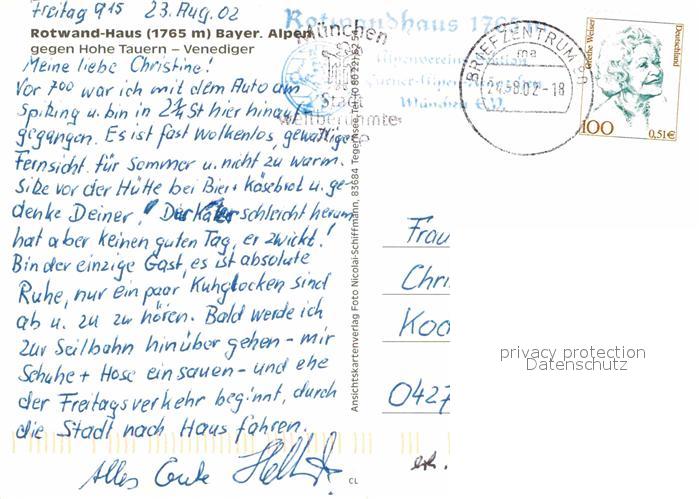 Freitag 9¹⁵ 23. Aug. 02
Rotwand-Haus (1765 m) Bayer. Alpen
gegen Hohe Tauern – Venediger
Meine liebe Christine!
Vor 7⁰⁰ war ich mit dem Auto am
Spitzing u. bin in 2¼ St hier hinauf
gegangen. Es ist fast wolkenlos, gewaltige
Fernsicht für Sommer u. nicht zu warm.
Sitze vor der Hütte bei Bier + Käsebrot u. ge-
denke Deiner! Der Kater schleicht herum
hat aber keinen guten Tag, er zwickt!
Bin der einzige Gast, es ist absolute
Ruhe, nur ein paar Kuhglocken sind
ab u. zu zu hören. Bald werde ich
zur Seilbahn hinüber gehen - mir
Schuhe + Hose einsauen - und ehe
der Freitagsverkehr beginnt, durch
die Stadt nach Haus fahren.
Alles Gute
CL
Ansichtskartenverlag Foto Nicolai-Schiffmann, 83684 Tegernsee, Tel. (0 80 22)
Rotwandhaus 1765 m
Alpenvereins
München E.V.
München
Stadt
Weltberühmte
BRIEFZENTRUM 80
ma
.08.02-18
Grethe Weiser
Deutschland
100
0,51€
Frau
Chri
Koo
0427
privacy protection
Datenschutz